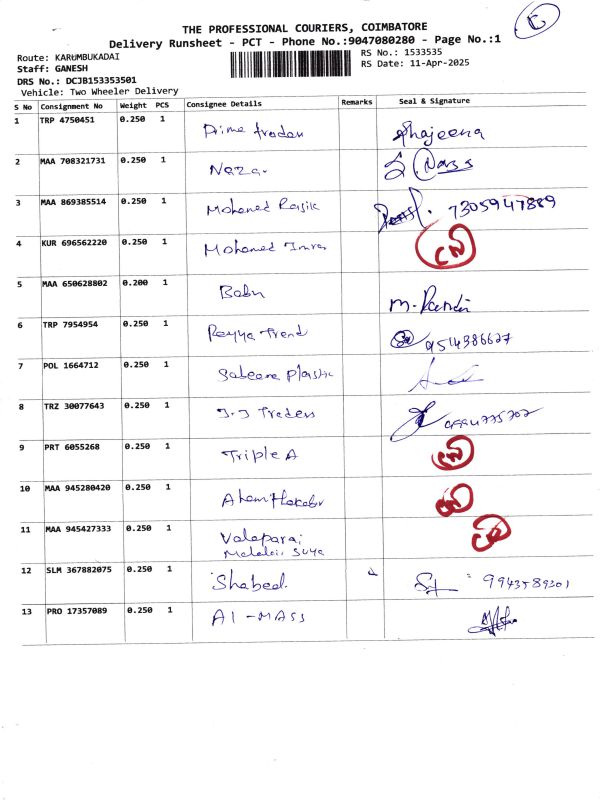 THE PROFESSIONAL COURIERS, COIMBATORE
Delivery Runsheet - PCT - Phone No.:9047080280 - Page No.:1
Route: KARUMBUKADAI
RS No.: 1533535
Staff: GANESH
RS Date: 11-Apr-2025
DRS No.: DCJB153353501
Vehicle: Two Wheeler Delivery
S No Consignment No Weight PCS Consignee Details Remarks Seal & Signature
1 TRP 4750451 0.250 1 Prime traders Shajeena
2 MAA 708321731 0.250 1 Nazar
3 MAA 869385514 0.250 1 Mohamed Rasik 7305947889
4 KUR 696562220 0.250 1 Mohamed Imran
5 MAA 650628802 0.200 1 Babu
6 TRP 7954954 0.250 1 Trend 9514386627
7 POL 1664712 0.250 1 Plastic
8 TRZ 30077643 0.250 1 J.J Traders
9 PRT 6055268 0.250 1 Triple A
10 MAA 945280420 0.250 1
11 MAA 945427333 0.250 1 Valaparai
12 SLM 367882075 0.250 1 Shabeed 9943589301
13 PRO 17357089 0.250 1 Al-MASS